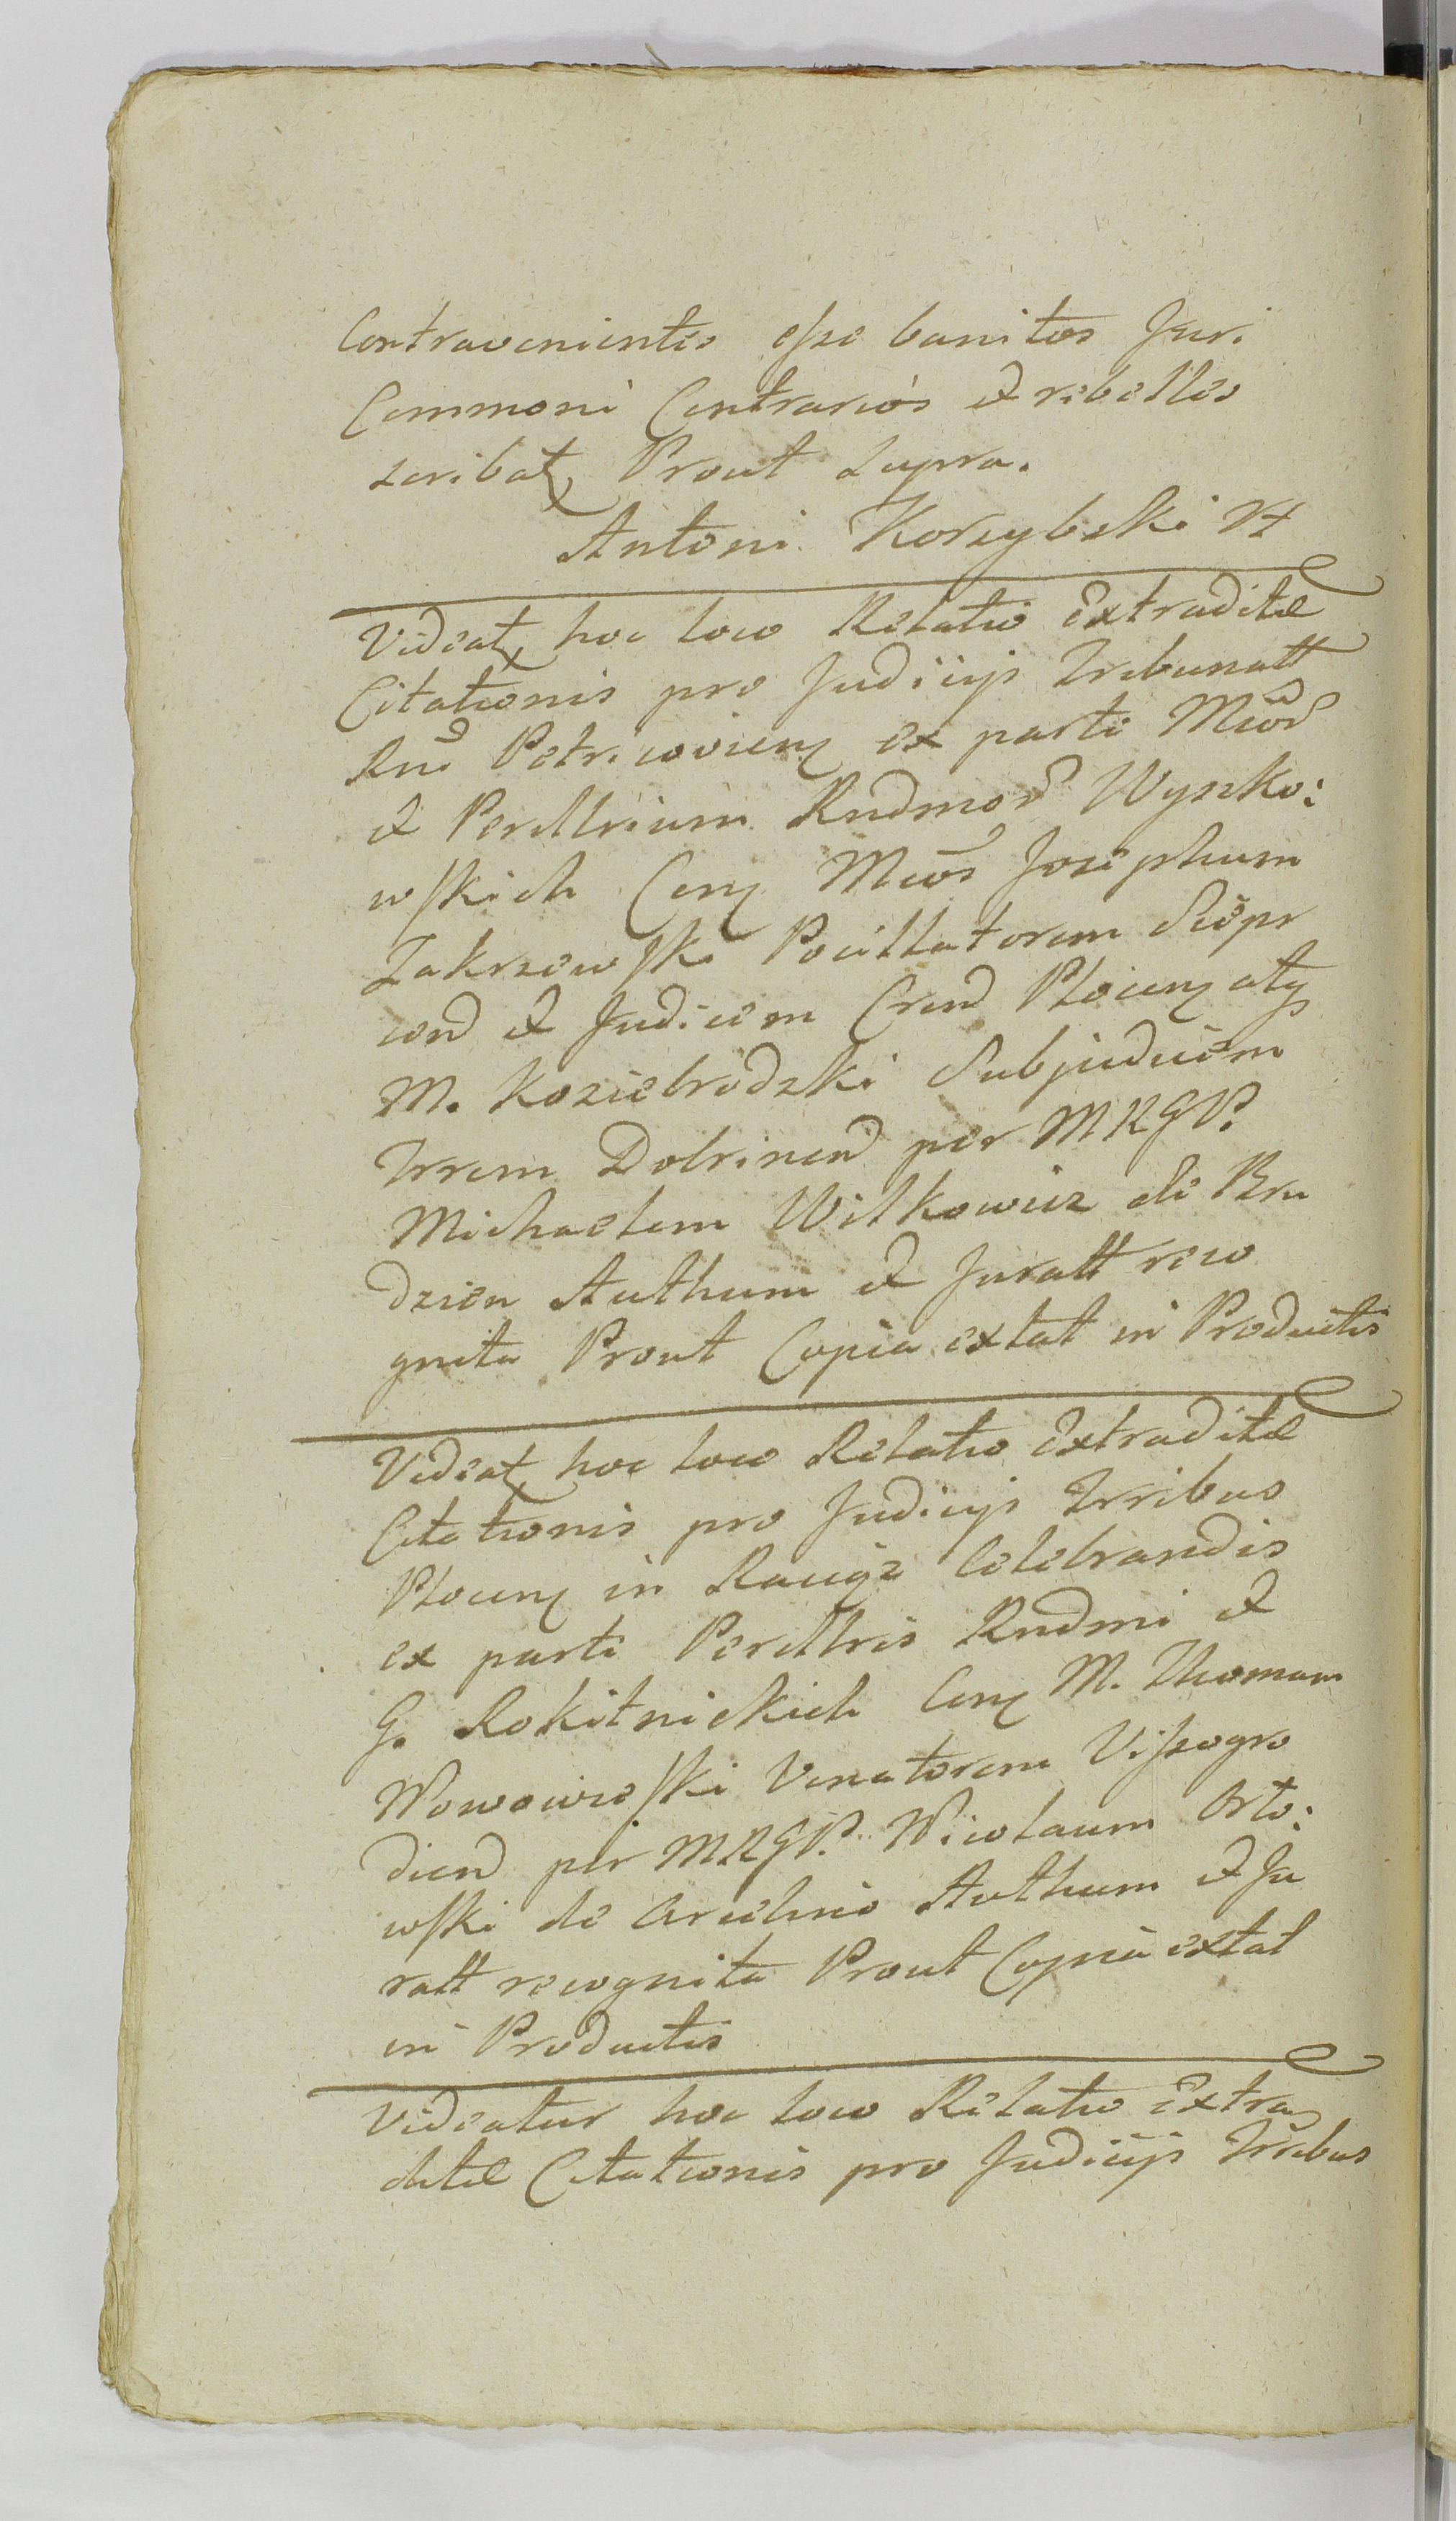 Contravenientes esse banitos Juri
Commoni Contrarios et rebelles
scribat Prout supra.
Antoni Korzybski
Videat hoc loco Relatio Extraditæ
Citationis pro Judiiijs Tribunall
Rni Petricovien ex parte
et Perillrium Rndmor Wyszko:
wskich Con Mcos Josephum
Zakrzewski Pocillatorem Sierpr
cen et Judicem Cren Plocen atq
M. Koziebrodzki Subjudicem
Trrem Dobrinen per MRGP.
Michaelem Witkowicz de Bru
dzien Authum et Juratt reco
gnita Prout Copia extat in Productis
Videat hoc loco Relatio Extraditæ
Citationis pro Judicijs Trribus
Plocen in Raciąz Celebrandis
ex parte Perillris Rndmi et
G. Rokitnickich Con M. Thomam
Nowowieski Venatorem Vissogro
dien per MRGP. Nicolaum Orło:
wski de Authum et Ju
ratt recognita Prout Copia extat
in Productis
Videatur hoc loco Relatio Extra
ditæ Citationis pro Judicijs Trribus